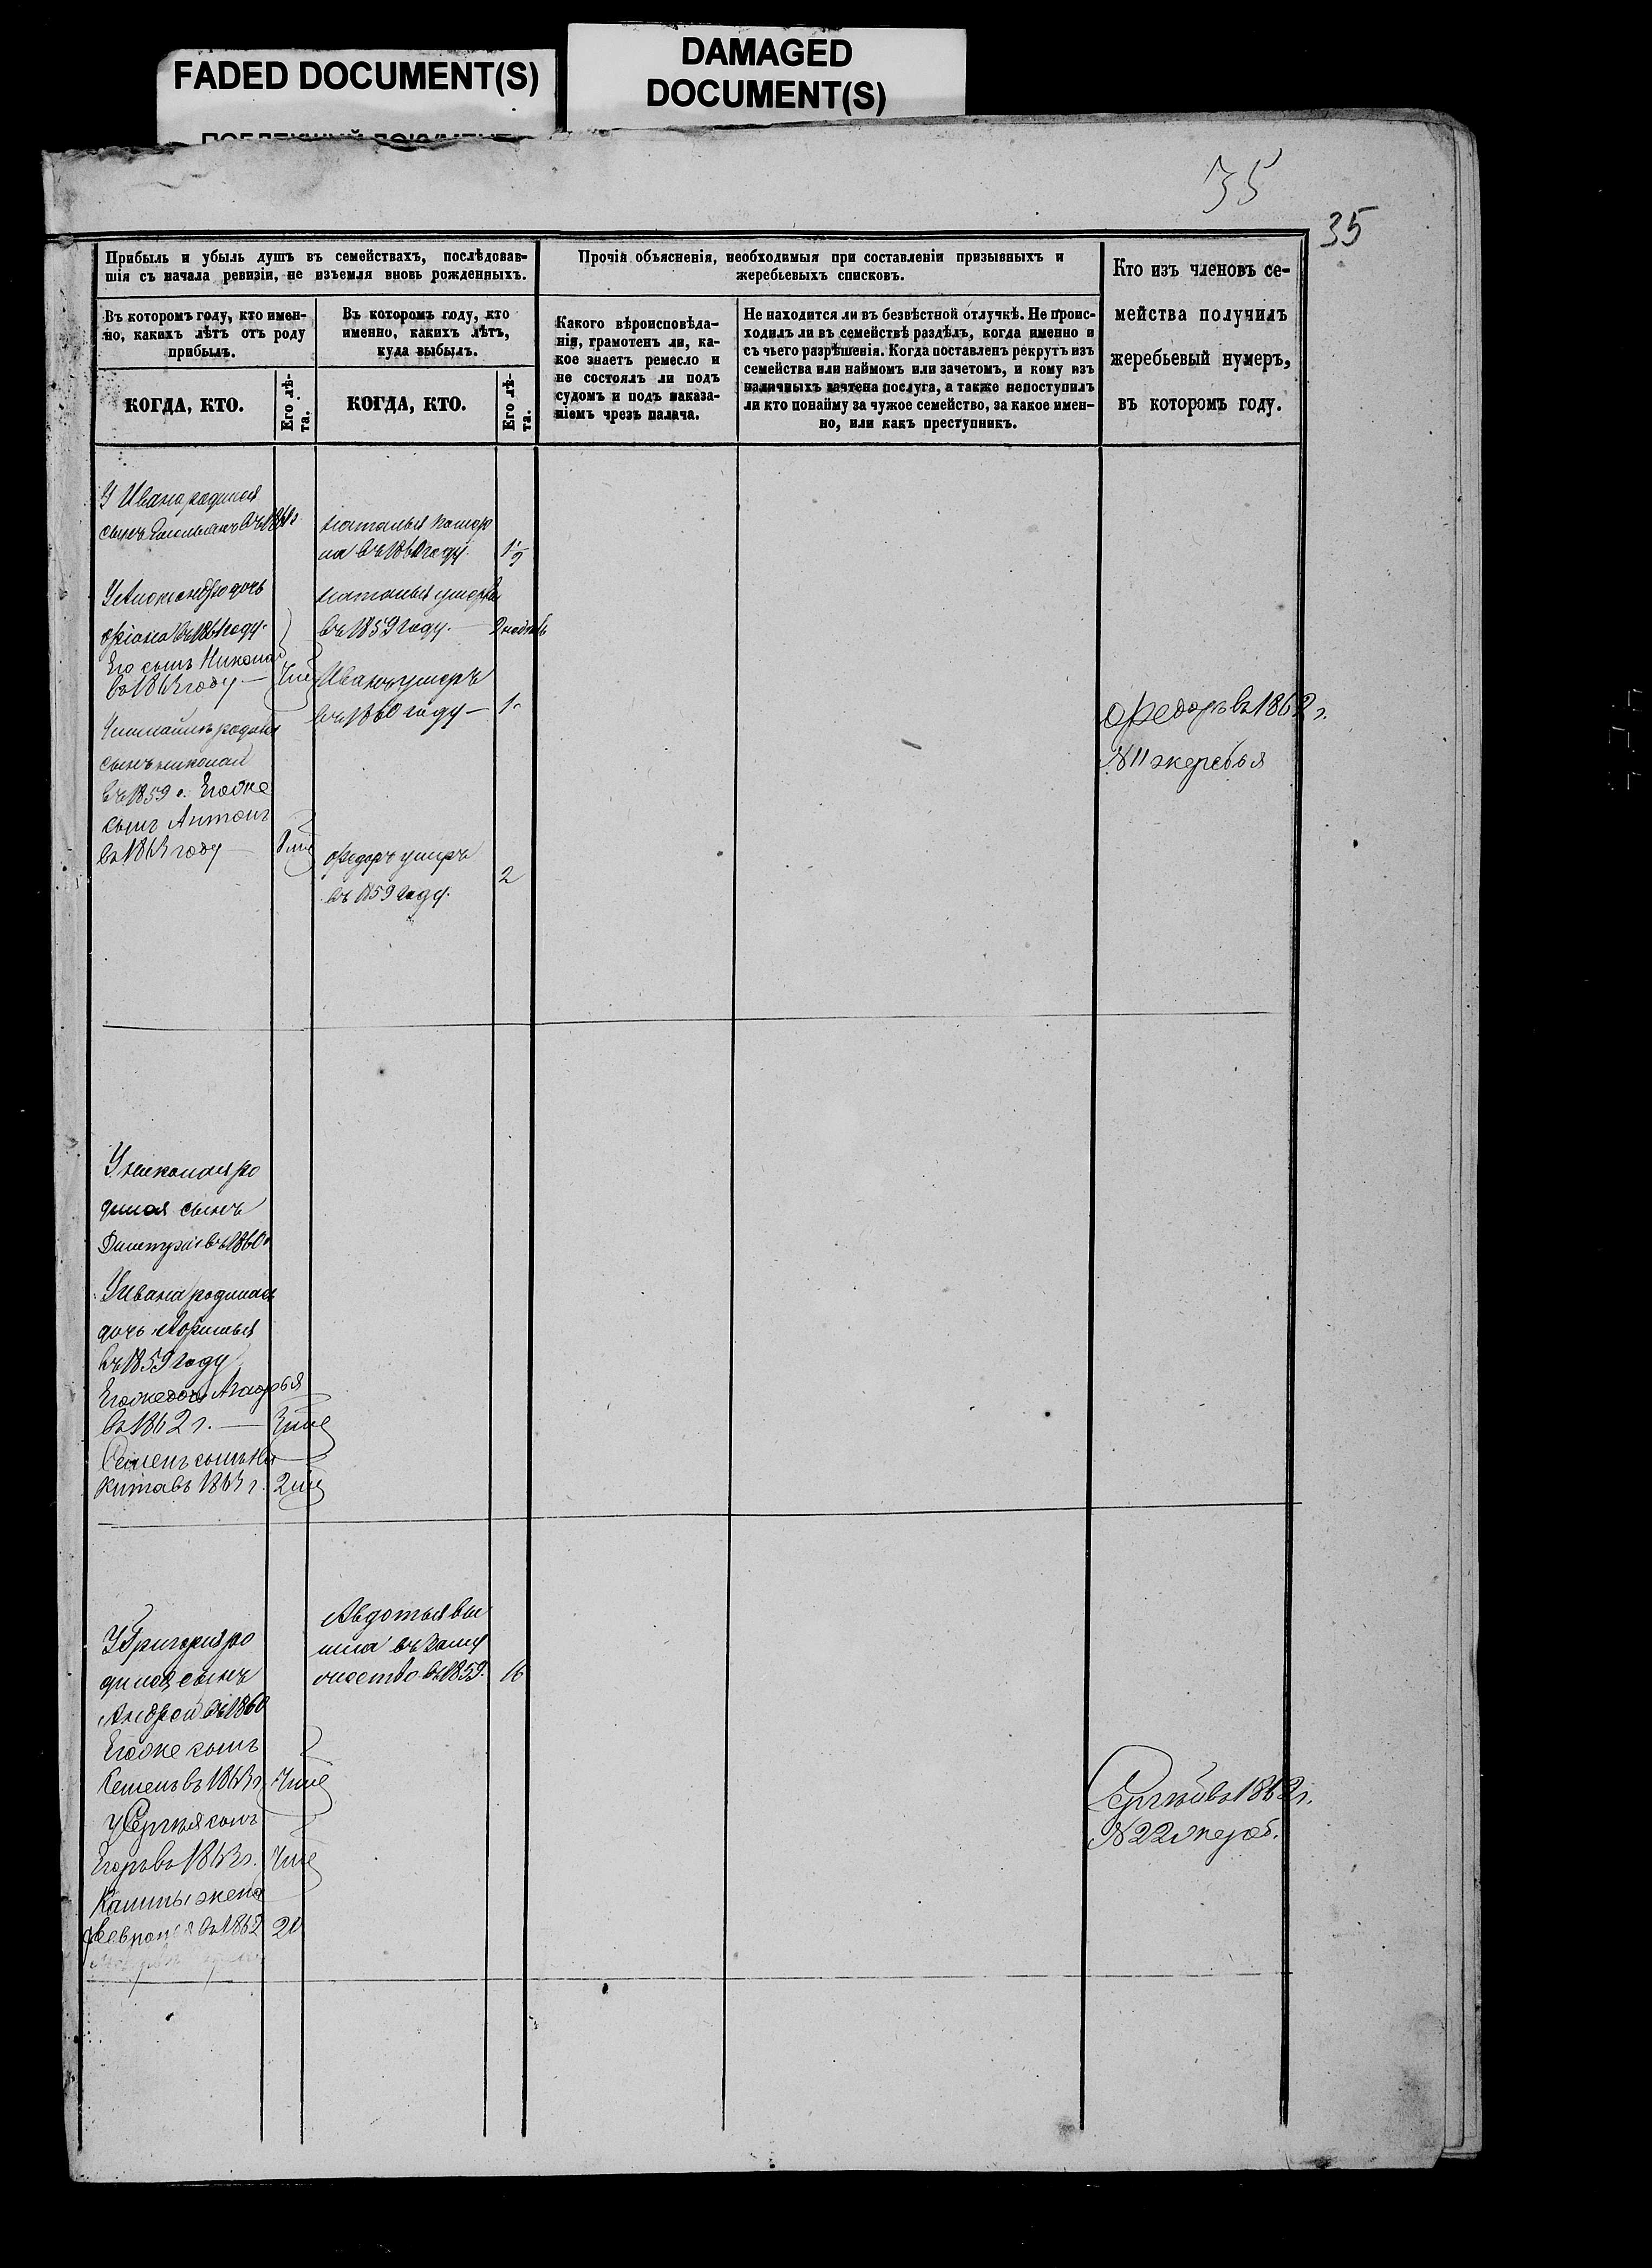 FADED DOCUMENT(S)
DAMAGED
DOCUMENT(S)
35
35
Прибыль и убыль душъ въ семействахъ, послѣдовав-
шія съ начала ревизіи, не изъемля вновь рожденныхъ.
Прочія объясненія, необходимыя при составленіи призывныхъ и
жеребьевыхъ списковъ.
Кто изъ членовъ се-
мейства получилъ
жеребьевый нумеръ,
въ которомъ году.
Въ которомъ году, кто имен-
но, какихъ лѣтъ отъ роду
прибылъ.
Въ которомъ году, кто
именно, какихъ лѣтъ,
куда выбылъ.
Какого вѣроисповѣда-
нія, грамотенъ ли, ка-
кое знаетъ ремесло и
не состоялъ ли подъ
судомъ и подъ наказа-
ніемъ чрезъ палача.
Не находится ли въ безвѣстной отлучкѣ. Не проис-
ходилъ ли въ семействѣ раздѣлъ, когда именно и
съ чьего разрѣшенія. Когда поставленъ рекрутъ изъ
семейства или наймомъ или зачетомъ, и кому изъ
наличныхъ зачтена послуга, а также непоступилъ
ли кто понайму за чужое семейство, за какое имен-
но, или какъ преступникъ.
КОГДА, КТО.
Его лѣ-
та.
КОГДА, КТО.
Его лѣ-
та.
У Ивана родился
сынъ въ 1861г
Наталья
въ 1860 году.
дочь
въ 1861 году.
Его сынъ Николай
въ 1863 году
Наталья умерла
въ 1859 году. 2 недѣль
Иванъ умеръ
въ 1860 году — 1
родился
сынъ Николай
въ 1859 г. Егоже
сынъ Антонъ
въ 1863 году
Федоръ умеръ
въ 1859 году.
2
Федоръ въ 1862 г.
№ 11 жеребья
У Николая ро
дился сынъ
Дмитрій въ 1860
У Ивана родилась
дочь
въ 1859 году
Егоже дочь
въ 1862 г.
Семенъ сынъ Ни
кита въ 1863 г.
Авдотья вы
шла въ заму
жество въ 1859. 16
У Григорья ро
дился сынъ
Андрей въ 1860
Егоже сынъ
Семенъ въ 1863 г.
У Сергѣя сынъ
Егоръ въ 1863 г.
жена
Февронья въ 1862 20
Сергѣй въ 1862 г.
№ 22 жереб.